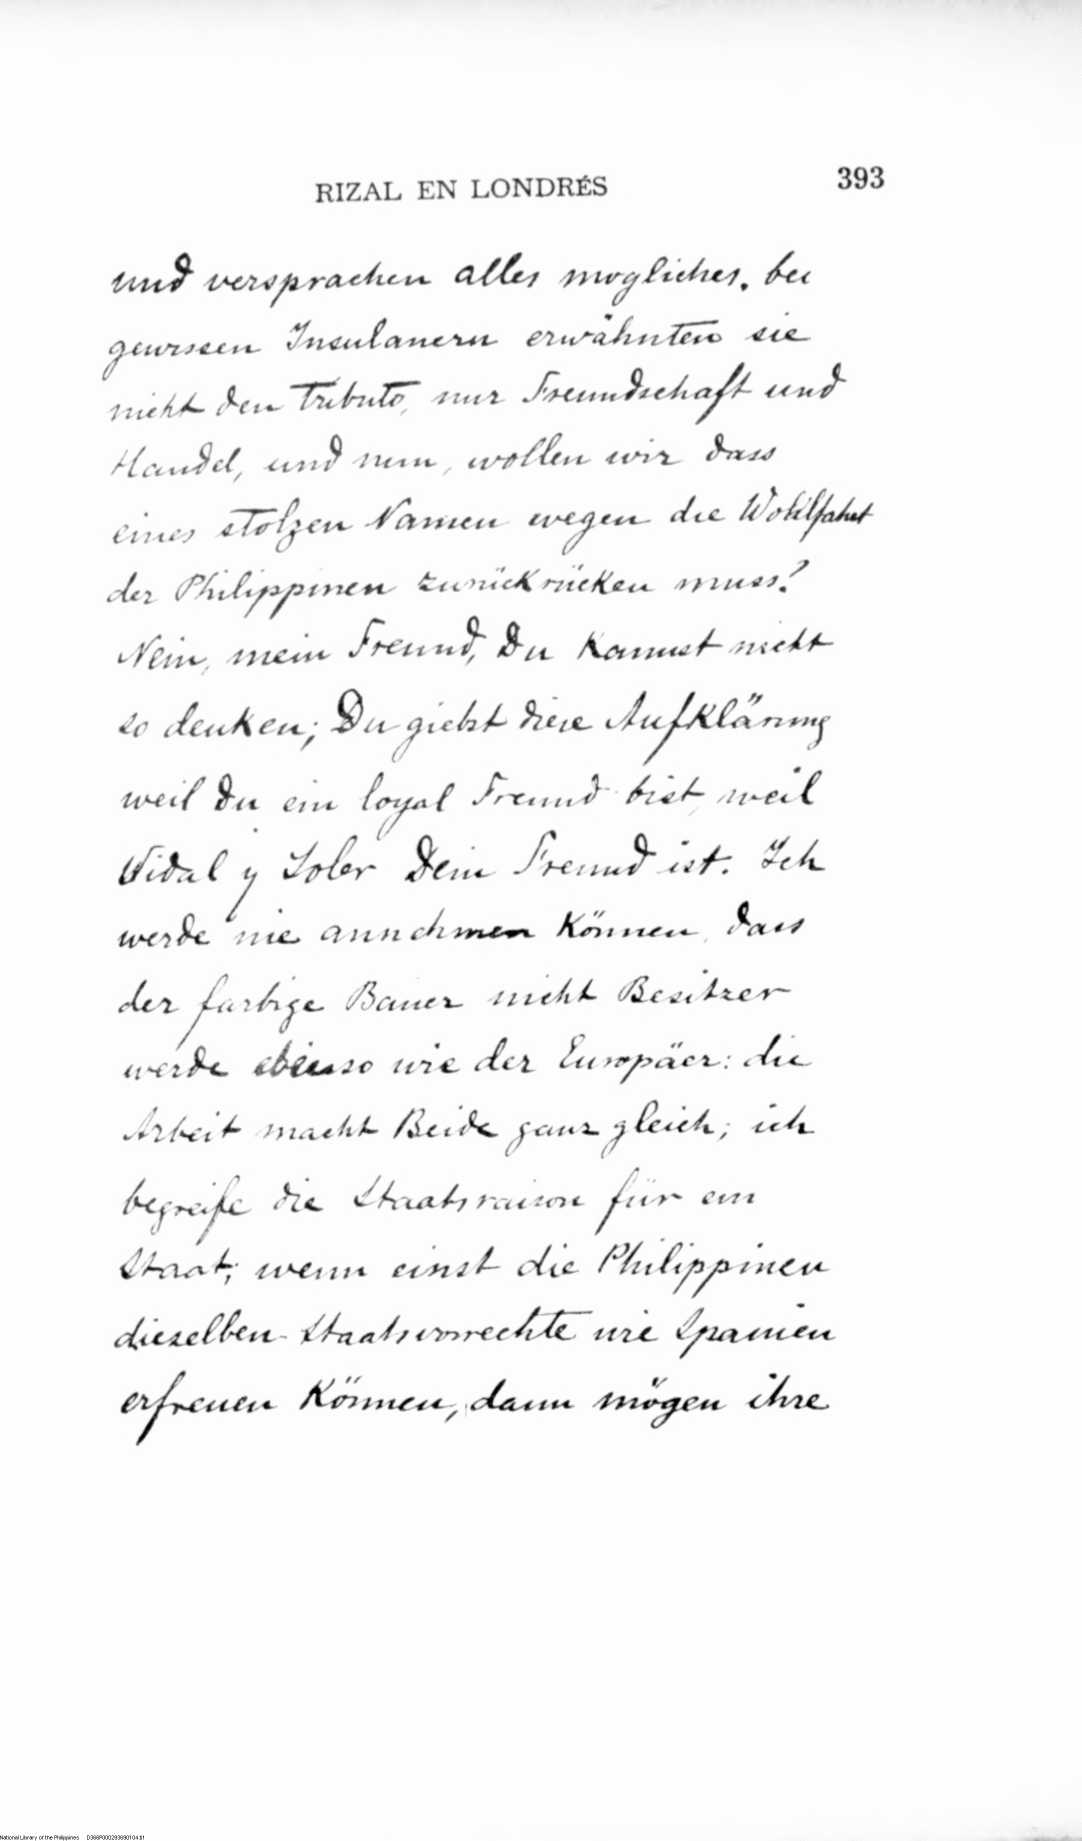 RIZAL EN LONDRÉS 393
und versprachen alles mogliches. bei
gewissen Insulanern erwähnten sie
nicht den tributo, nur Freundschaft und
Handel, und nun, wollen wir dass
eines stolzen Namen wegen die Wohlfahrt
der Philippinen zurückrücken muss?
Nein, mein Freund, Du kannst nicht
so denken; Du giebst diese Aufklärung
weil Du ein loyal Freund bist, weil
Vidal y Soler Dein Freund ist. Ich
werde nie annehmen können, dass
der farbige Bauer nicht Besitzer
werde ebenso wie der Europäer: die
Arbeit macht Beide ganz gleich; ich
begreife die Staatsraison für ein
Staat; wenn einst die Philippinen
dieselben Staatsvorrechte wie Spanien
erfreuen können, dann mögen ihre
National Library of the Philippines